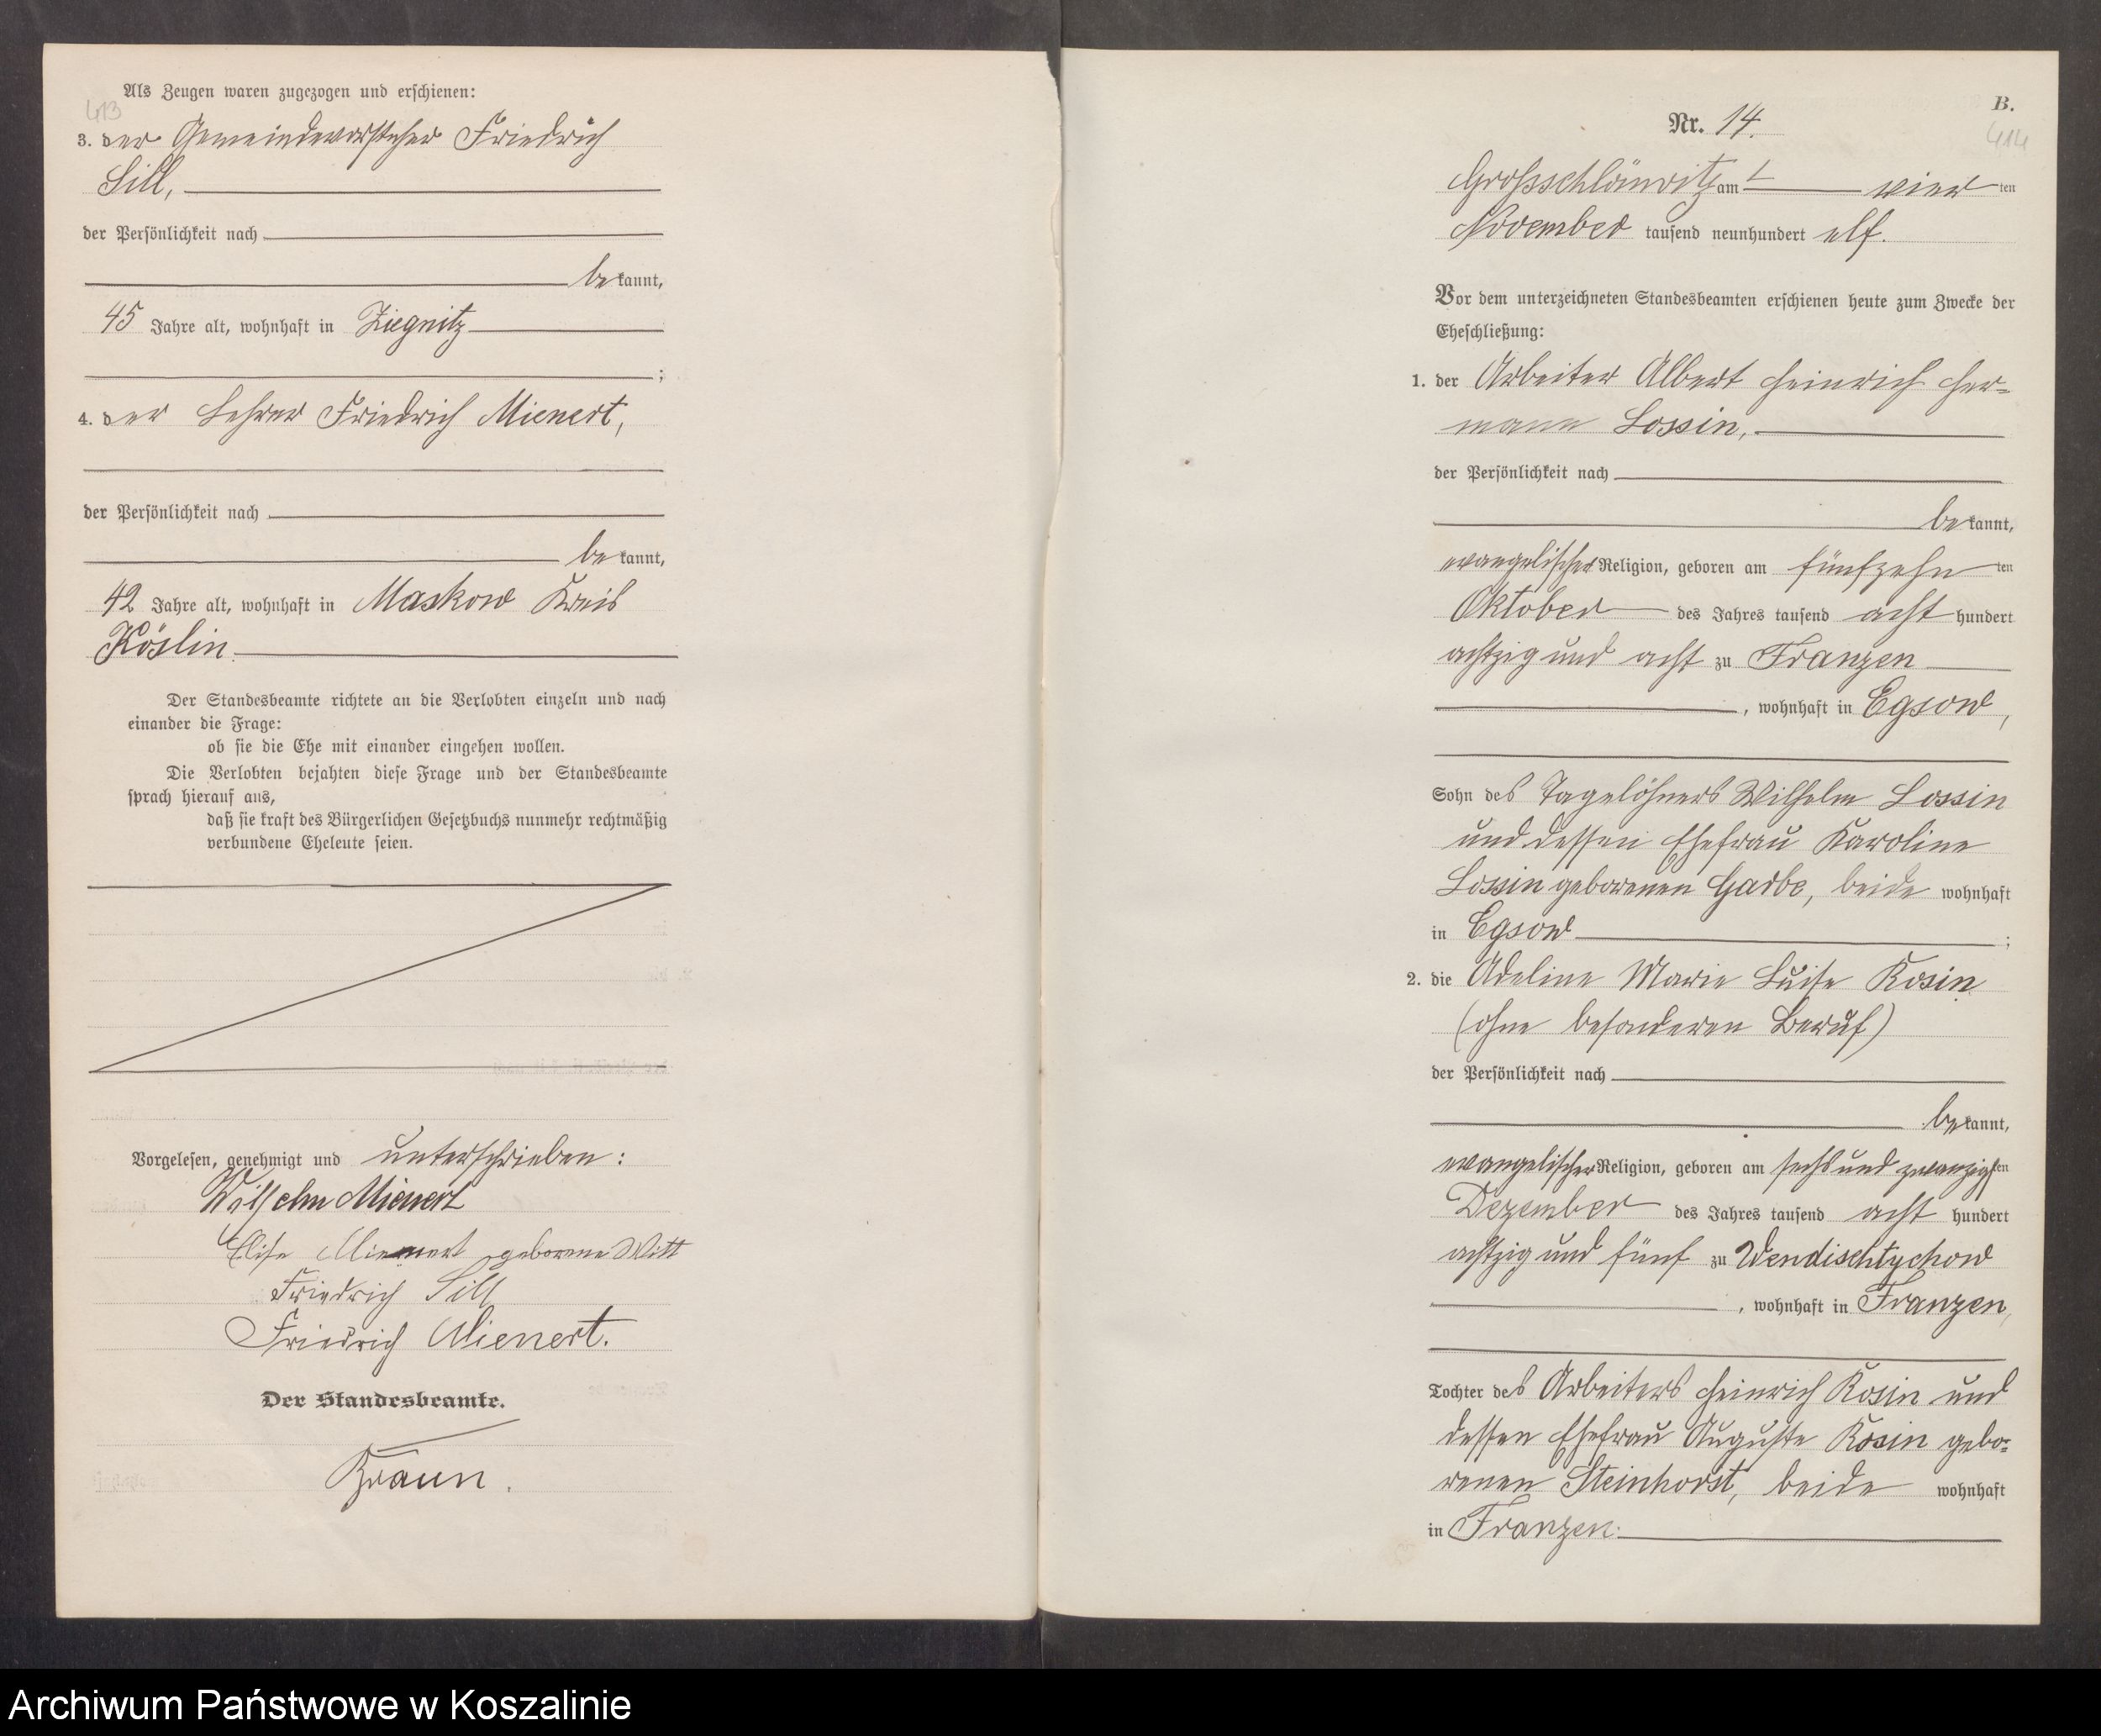 413
Als Zeugen waren zugezogen und erschienen:
3. der Gemeindevorsteher Friedrich
Sill,
der Persönlichkeit nach
bekannt,
45 Jahre alt, wohnhaft in Ziegnitz
;
4. der Lehrer Friedrich Mienert,
der Persönlichkeit nach
bekannt,
42 Jahre alt, wohnhaft in Maskow Kreis
Köslin.
Der Standesbeamte richtete an die Verlobten einzeln und nach
einander die Frage:
ob sie die Ehe mit einander eingehen wollen.
Die Verlobten bejahten diese Frage und der Standesbeamte
sprach hierauf aus,
daß sie kraft des Bürgerlichen Gesetzbuchs nunmehr rechtmäßig
verbundene Eheleute seien.
Vorgelesen, genehmigt und unterschrieben:
Wilhelm Mienert
Elise Mienert geborene Witt
Friedrich Sill
Friedrich Mienert.
Der Standesbeamte.
Braun.
B.
414
Nr. 14.
Grossschlönwitz am vierten
November tausend neunhundert elf.
Vor dem unterzeichneten Standesbeamten erschienen heute zum Zwecke der
Eheschließung:
1. der Arbeiter Albert Heinrich Her=
mann Lossin,
der Persönlichkeit nach
bekannt,
evangelischer Religion, geboren am fünfzehnten
Oktober des Jahres tausend acht hundert
achtzig und acht zu Franzen
, wohnhaft in Egsow,
Sohn des Tagelöhners Wilhelm Lossin
und dessen Ehefrau Karoline
Lossin geborenen Garbe, beide wohnhaft
in Egsow ;
2. die Adeline Marie Luise Kosin
(ohne besonderen Beruf)
der Persönlichkeit nach
bekannt,
evangelischer Religion, geboren am sechs und zwanzigsten
Dezember des Jahres tausend acht hundert
achtzig und fünf zu Wendischtychow
, wohnhaft in Franzen,
Tochter des Arbeiters Heinrich Kosin und
dessen Ehefrau Auguste Kosin gebo=
renen Steinhorst, beide wohnhaft
in Franzen.
Archiwum Państwowe w Koszalinie